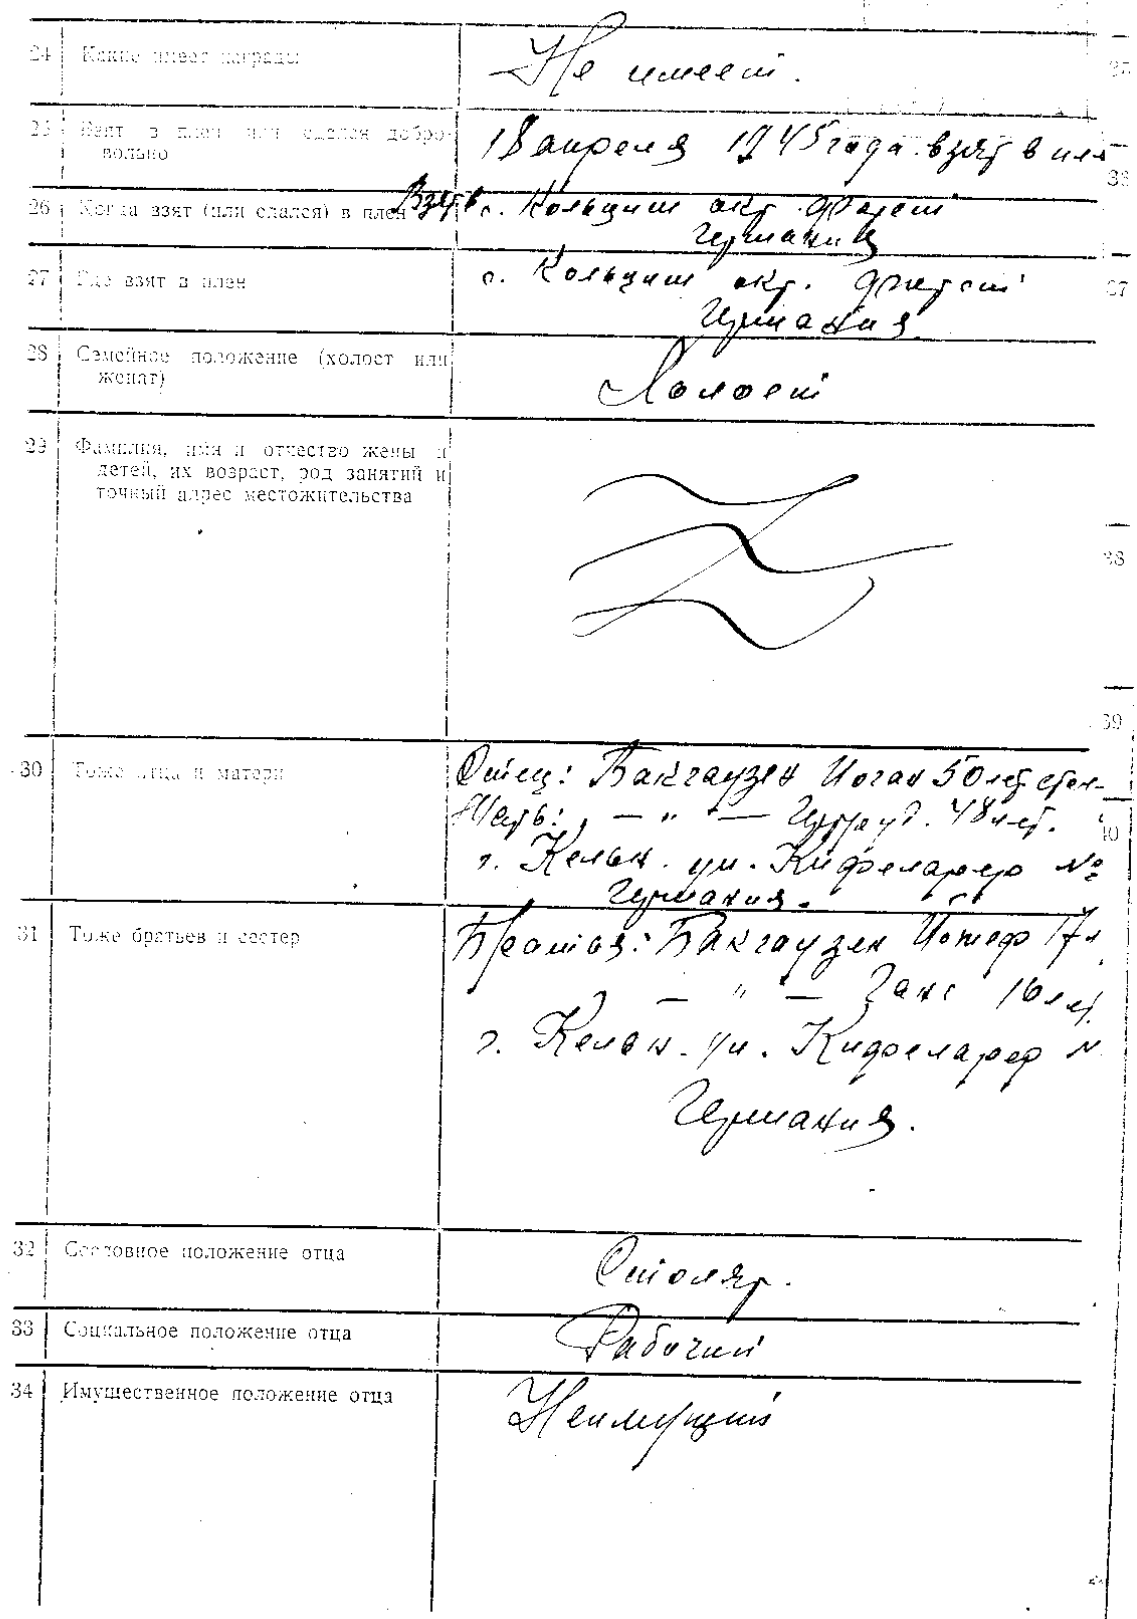 24 Какие имеет награды Не имеет.
25 Взят в плен или сдался добро-
вольно 18 апреля 1945 года взят в пле
26 Когда взят (или сдался) в плен Взят в с. Кольциш окр.
Германия
27 Где взят в плен с. Кольциш окр.
Германия
28 Семейное положение (холост или
женат) Холост
29 Фамилия, имя и отчество жены и
детей, их возраст, род занятий и
точный адрес местожительства
30 Тоже отца и матери Отец: Бакгаузен Иоган 50 лет стол-
Мать: — " — Гертруд. 48 лет.
г. Кельн. ул. Кифеларер №
Германия.
31 Тоже братьев и сестер Братья: Бакгаузен Йозеф 17 л
— " — Ганс 16 лет.
г. Кельн. ул. Кифеларер №
Германия.
32 Сословное положение отца Столяр.
33 Социальное положение отца Рабочий
34 Имущественное положение отца Неимущий
37
38
39
40